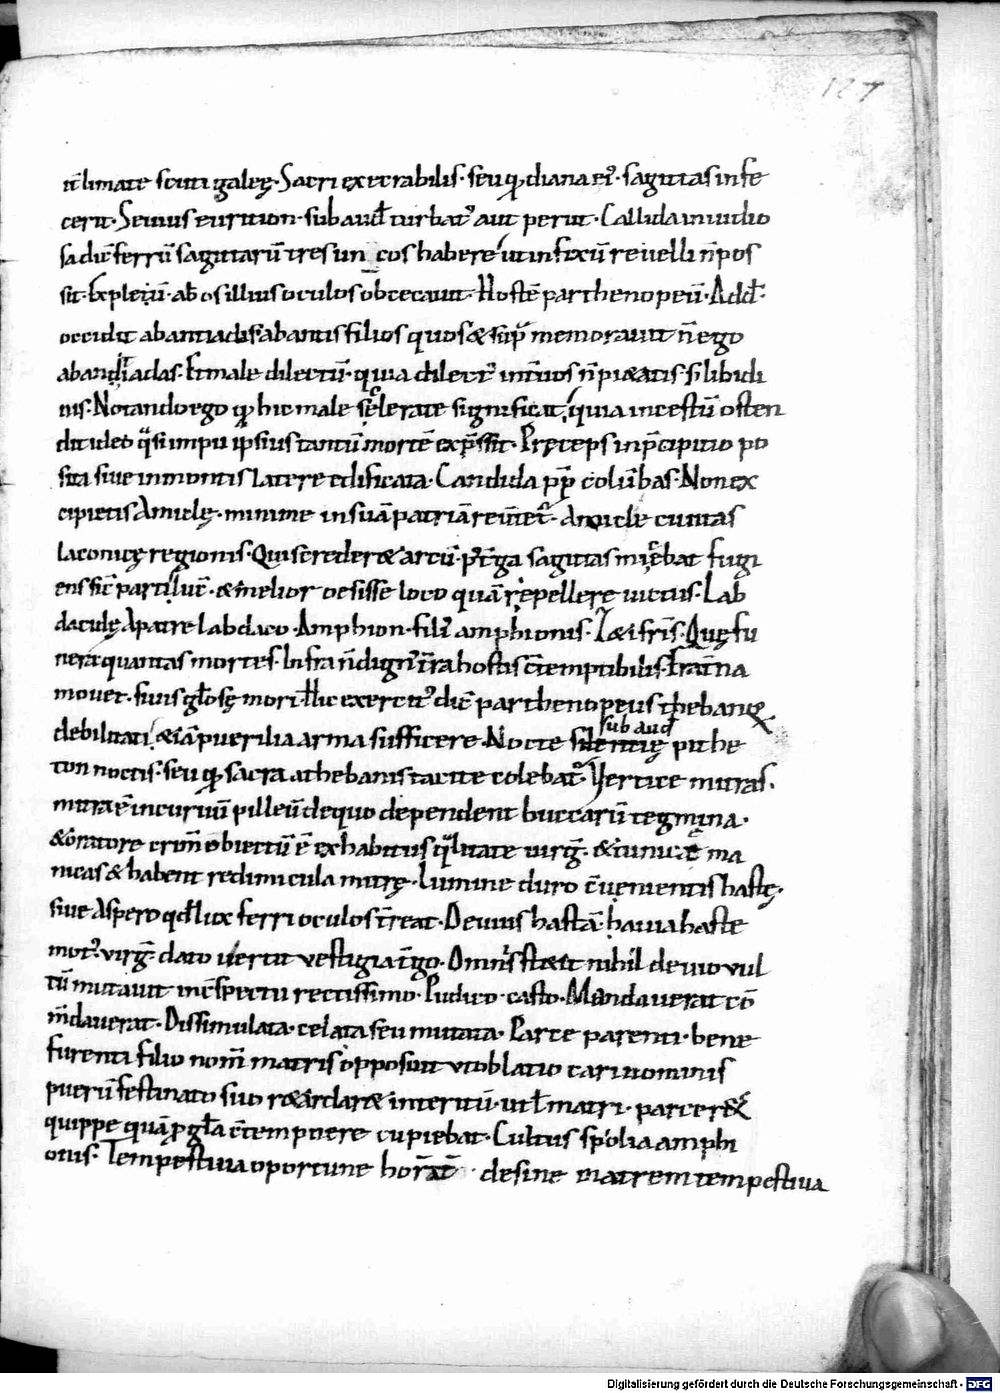 127
it͞ limate scuti galeę. Sacri execrabilis. seu ꝙ diana ei᾽ sagittas infe
cerit. Seuius eurition. sub aud̄ turbat᾽ aut perit. Callida inuidio
sa dic̄ ferrū sagittarū tres un cos habere ut infixū reuelli n̄ pos
sit. Expletū. ab os illius oculos obcecauit. Hostē parthenopeū. Add̄.
occidit abantiades abantis filios quos & sup̄ memorauit n̄ ego
abandiadas. Et male dilectū. quia dilect᾽ int̄ uos n̄ pi&atis s; libidi
nis. Notando ergo ꝙ hic male scelerate significat, quia incestū osten
dit ideo q̄si impii ipsius tantū mortē exp̄ssit. Pręceps in p̄cipitio po
sita siue in montis latere edificata. Candida ꝓp̄ colūbas. Non ex
cipietis Amiclę. minime in suā patriā reuert̄. Amicle ciuitas
laconicę regionis. Quis creder& arcū. p᾽ t̄ga sagittas mittebat fugi
ens sic̄ parti. & melior cesisse loco quā repellere uictus. Lab
daculę A patre labdaco. Amphion. fili᾽ amphionis. Quę fu
nera quantas mortes. Infra n̄ dign᾽ ir̄a hostis c̄temptibilis.
mouet. suis gl̄osę mori. Hic exercit᾽ dic̄ parthenopeus thebanoꝝ
debilitati, & iā puerilia arma sufficere. Nocte silentię pithe
sub aud̄
ton noctis. seu ꝙ sacra a thebanis tacite colebat᾽. Vertice mitras.
mitra ē incuruū pilleū de quo dependent buccarū tegmina.
& oratore crim̄ obiectū ē ex habitus q̄litate uirg̅. & tunicę ma
nicas & habent redimicula mitrę. Lumine duro c̄uenientis hastę.
siue Aspero qd̄ lux ferri oculos t̄reat. Deuius hastā. hauia haste
mot᾽. uirg̅. dato uertit uestigia t̄go. Omnis stetit nihil de uio uul
tū mutauit in c̄spectu rectissimo. Pudico. casto. Mandauerat cō
m̄dauerat. Dissimulata. celata seu mutata. Parce parenti. bene
furenti filio nom̄ matris opposuit ut oblatio cari nominis
puerū festinato suo r&ardar& interitū. ut l̄ matri. parcer&
quippe quā ꝓ gl̄a c̄tempnere cupiebat. Cultus spolia amphi
onis. Tempestiua oportune desine matrem tempestiua
Digitalisierung gefördert durch die Deutsche Forschungsgemeinschaft - DFG